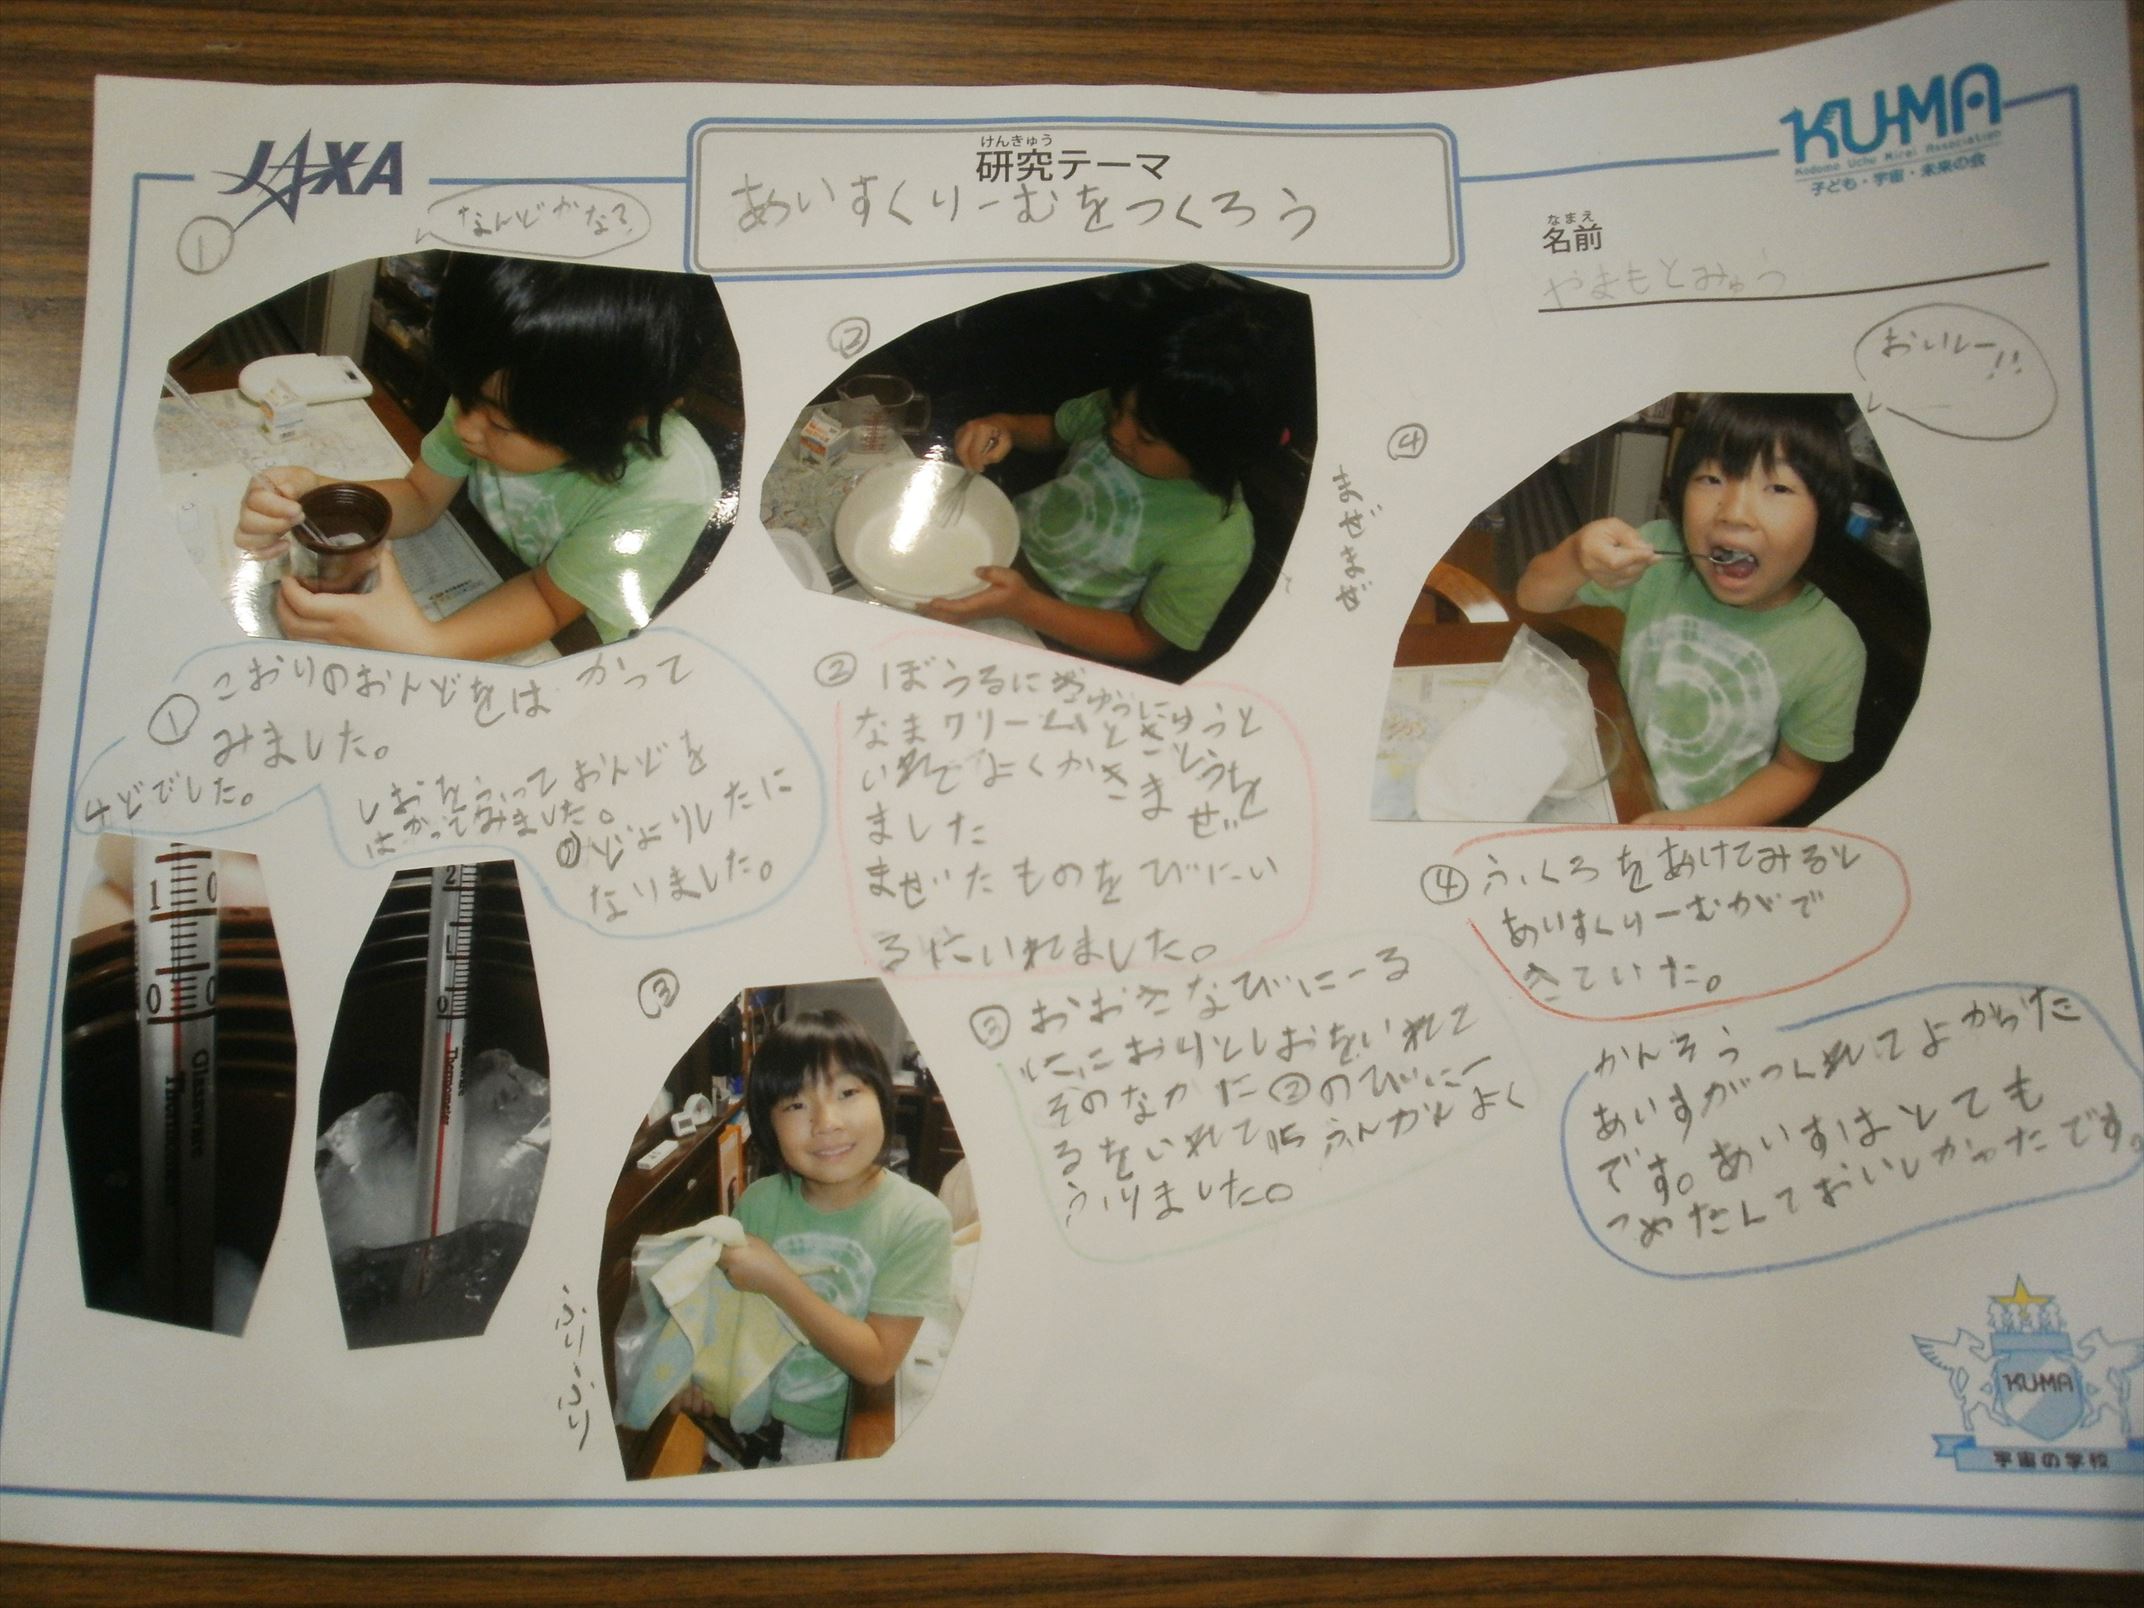 JAXA
けんきゅう
研究テーマ
あいすくりーむをつくろう
KU-MA
Kodomo Uchu Mirai Association
子ども・宇宙・未来の会
なまえ
名前
やまもとみゅう
①
なんどかな?
②
まぜまぜ
④
おいしー!!
① こおりのおんどをはかって
みました。
4どでした。
しおをふっておんどを
はかってみました。
0どよりしたに
なりました。
② ぼうるにぎゅうに
なまクリームとぎゅうと
いれてよくかきまぜ
さとうを
ました
まぜたものをびにい
るにいれました。
③
ふりふり
③ おおきなびにーる
にこおりとしおをいれて
そのなかに②のびにー
るをいれて15ふんかんよく
ふりました。
④ ふくろをあけてみると
あいすくりーむがで
きていた。
かんそう
あいすがつくれてよかった
です。あいすはとても
つめたくておいしかったです。
1 0
0 0
Glassware
Thermometer
2
1
0
Thermometer
KU-MA
宇宙の学校